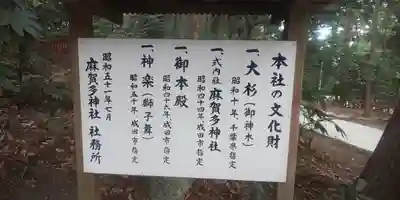 本社の文化財
一、大杉(御神木)
昭和十年、千葉県指定
一、式内社 麻賀多神社
昭和四十四年、成田市指定
一、御本殿
昭和四十九年、成田市指定
一、神楽(獅子舞)
昭和五十年、成田市指定
昭和五十一年七月
麻賀多神社 社務所